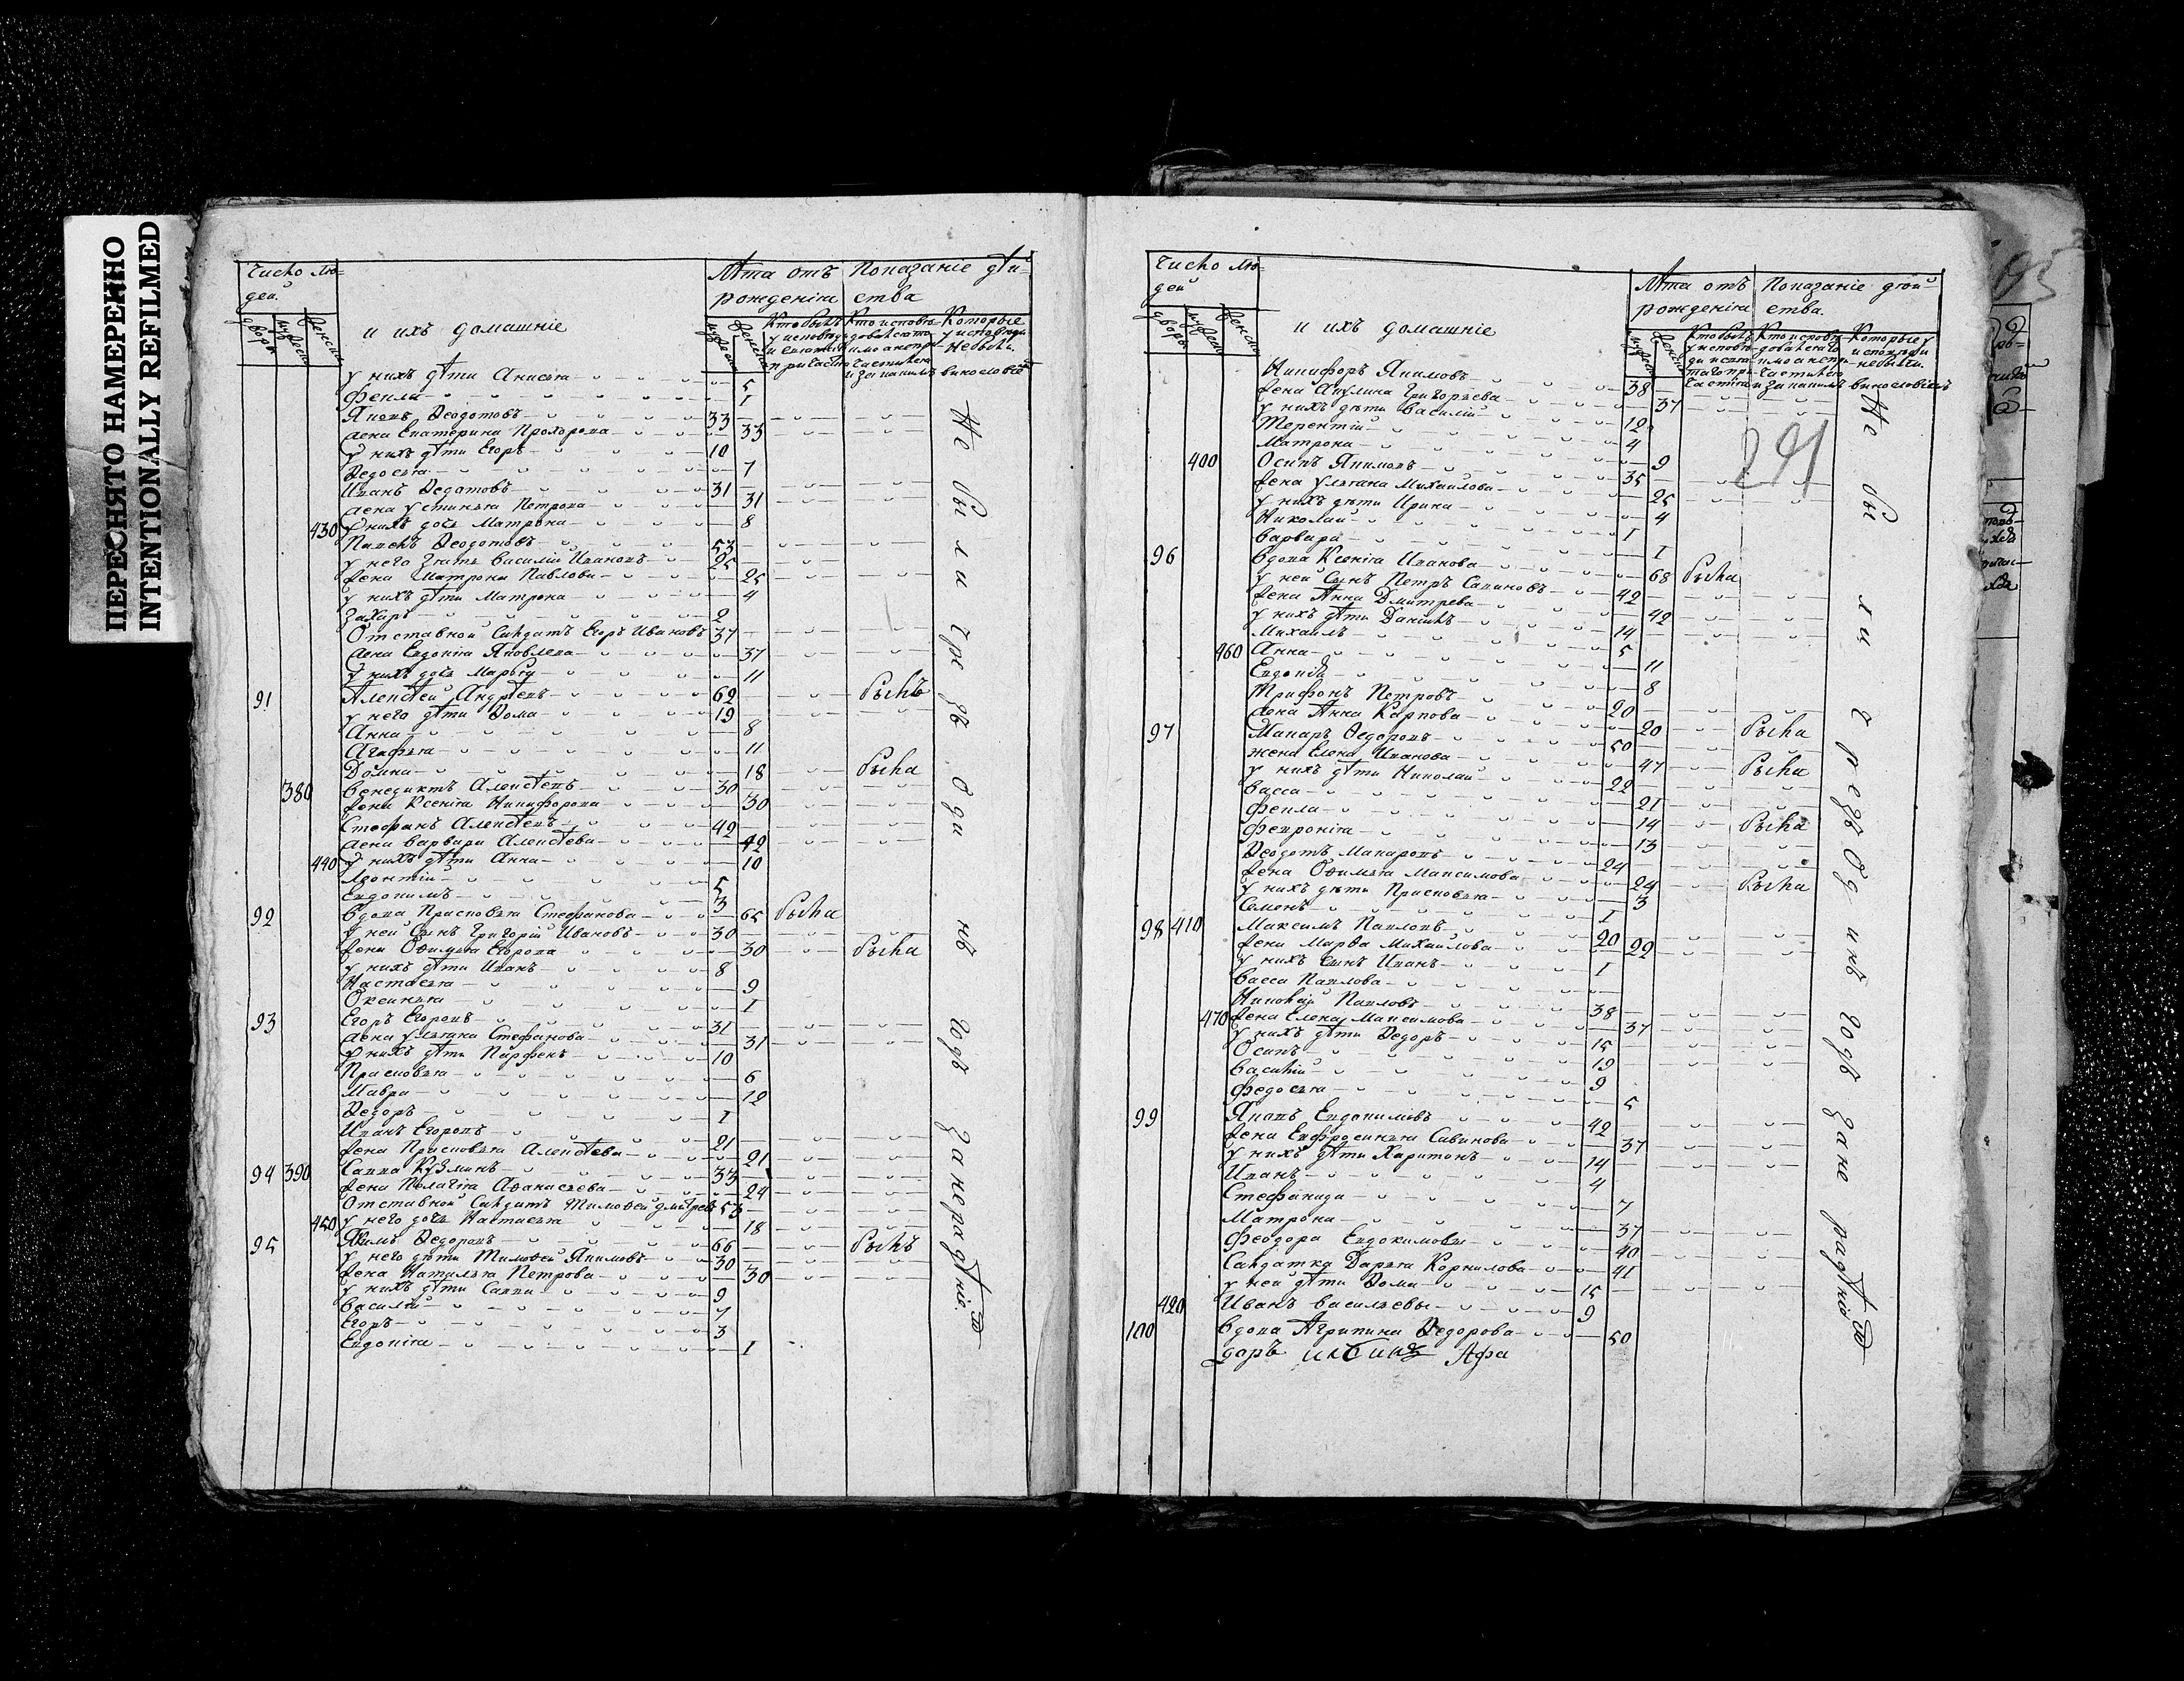 ПЕРЕСНЯТО НАМЕРЕННО
INTENTIONALLY REFILMED
Число лю-
дей.
и ихъ домашніе
Лѣта отъ рожденія
Показаніе дѣй-
ства
дворъ
мужеск
женска
Кто былъ
Кто исповѣ-
Которые
у нихъ дѣти Анисья 5
Фекла 1
Яковъ Ѳеодотовъ 33
жена Екатерина Прохорова 33
у нихъ дѣти Егоръ 10
Ѳедосья 7
Иванъ Ѳедотовъ 31
жена Устинья Петрова 31
430 у нихъ дочь Матрона 8
Ѳеодотовъ 53
у него зять Василій Ивановъ 25
жена Матрона Павлова 25
у нихъ дѣти Матрона 4
Захаръ 2
Отставной Салдатъ Егоръ Ивановъ 37
жена Евдокія Яковлева 37
у нихъ дочь Марѳа 11
91 Алексѣй Андрѣевъ 62 Былъ
у него дѣти Ѳома 19
Анна 8
Агафья 11
Домна 18 Была
380 Венедиктъ Алексѣевъ 30
жена Ксенія Никифорова 30
Стефанъ Алексѣевъ 42
жена Варвара Алексѣева 42
440 у нихъ дѣти Анна 10
Леонтій 5
Евдокимъ 3
92 Вдова Прасковья Стефанова 65 Была
у ней Сынъ Григорій Ивановъ 30
жена Офимья Егорова 30 Была
у нихъ дѣти Иванъ 8
Настасья 9
Оксинья 1
93 Егоръ Егоровъ 31
жена Ульяна Стефанова 31
у нихъ дѣти Парфенъ 10
Прасковья 6
Мавра 12
Ѳедоръ 1
Иванъ Егоровъ 21
жена Прасковья Алексѣева 21
94 390 Савва Кузминъ 33
жена Пелагія Афанасьева 24
Отставной Салдатъ Тимоѳей Дмитревъ 53
450 у него дочь Настасья 18
95 Якимъ Ѳедоровъ 66 Былъ
у него дѣти Тимоѳей Якимовъ 30
жена Наталья Петрова 30
у нихъ дѣти Савва 9
Василій 7
Егоръ 3
Евдокія 1
Не были чрезъ одинъ годъ за нерадѣніе
Число лю-
дей
и ихъ домашніе
Лѣта отъ рожденія
Показаніе дѣй-
ства.
дворъ
мужеск
женска
Кто былъ
Кто исповѣ-
Которые
291
Никифоръ Якимовъ 38
жена Акулина Григорьева 37
у нихъ дѣти Василій 12
Терентій 4
Матрона 9
400 Осипъ Якимовъ 35
жена Ульяна Михайлова 25
у нихъ дѣти Ирина 4
Николай 1
Варвара 1
96 Вдова Ксенія Иванова 68 Была
у ней Сынъ Петръ Савиновъ 42
жена Анна Дмитрева 42
у нихъ дѣти Данилъ 14
Михаилъ 5
460 Анна 11
Евдокія 8
Трифонъ Петровъ 20
жена Анна Карпова 20
97 Макаръ Ѳедоровъ 50 Была
жена Елена Иванова 47 Была
у нихъ дѣти Николай 22
Васса 21
Фекла 14 Была
Февронія 13
Ѳеодотъ Макаровъ 24
жена Офимья Максимова 24 Была
у нихъ дѣти Прасковья 3
Семенъ 1
98 410 Максимъ Павловъ 20
жена Марѳа Михайлова 22
у нихъ Сынъ Иванъ 1
Васса Павлова
Николай Павловъ 38
470 жена Елена Максимова 37
у нихъ дѣти Ѳедоръ 15
Осипъ 19
Василій 9
Федосья 5
99 Яковъ Евдокимовъ 42
жена Евфросинья Савинова 37
у нихъ дѣти Харитонъ 14
Иванъ 4
Стефанида 7
Матрона 37
Феодора Евдокимовы 40
Салдатка Дарья Корнилова 41
у ней дѣти Ѳома 15
420 Иванъ Васильевы 9
100 Вдова Агрипина Ѳедорова 50
Афа
Не были чрезъ одинъ годъ за нерадѣніе